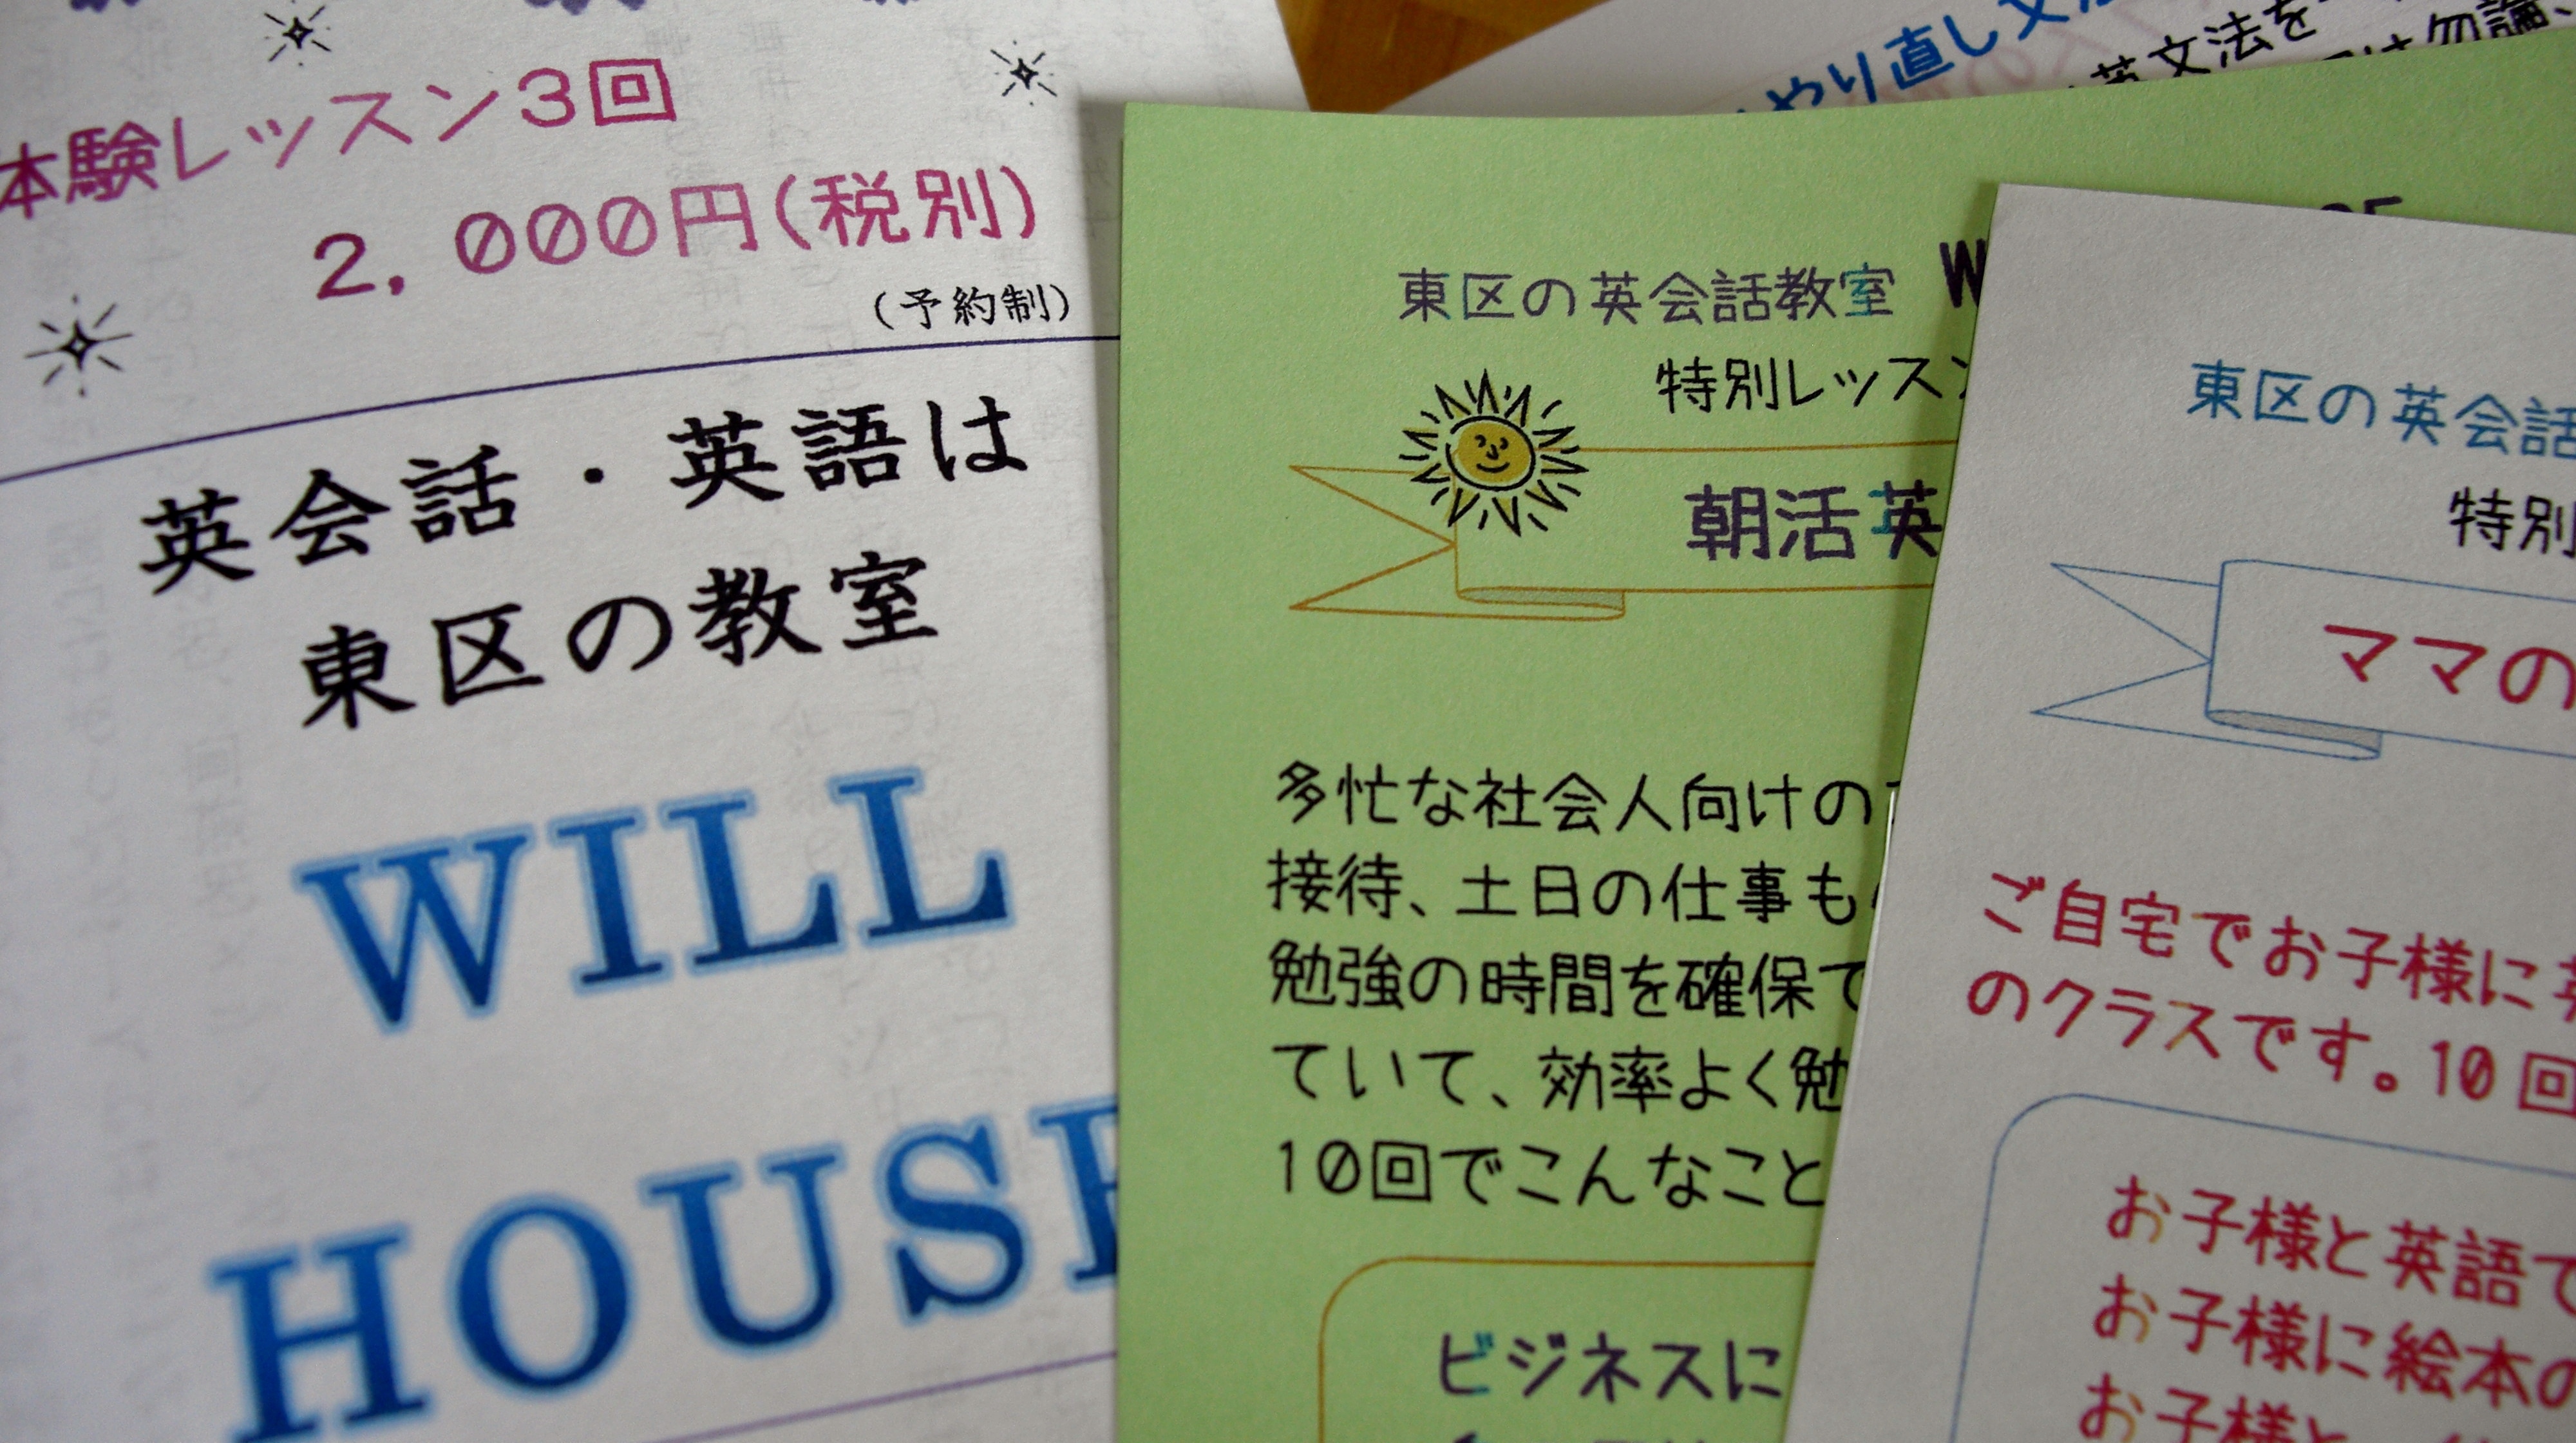 体験レッスン3回
2,000円(税別)
(予約制)
英会話・英語は
東区の教室
WILL
HOUSE
やり直し文法
英文法を
は勿論、
東区の英会話教室 W
特別レッスン
朝活英
多忙な社会人向けの
接待、土日の仕事も
勉強の時間を確保で
ていて、効率よく勉
10回でこんなこと
ビジネスに
東区の英会話
特別
ママの
ご自宅でお子様に英
のクラスです。10回
お子様と英語で
お子様に絵本の
お子様と